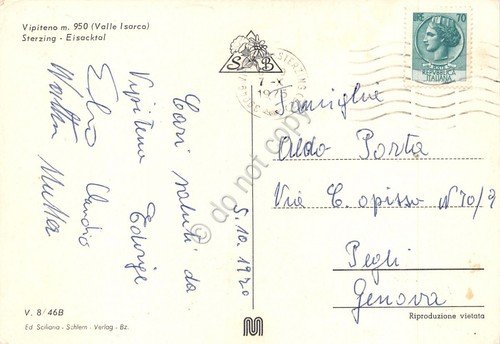 Vipiteno m. 950 (Valle Isarco)
Sterzing - Eisacktal
Cari saluti da
Vipiteno Edvige
Elio Claudio
5.10.1970
S B
LIRE 70
REPUBBLICA
ITALIANA
Famiglia
Aldo Porta
Via C. opisso N 70/2
Pegli
Genova
V. 8/46B
Ed. Sciliana - Schlern - Verlag - Bz.
Riproduzione vietata
do not copy